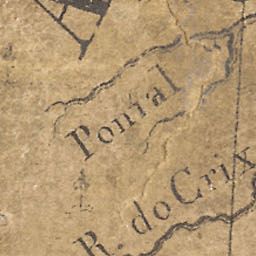 Pontal
R. do Crix